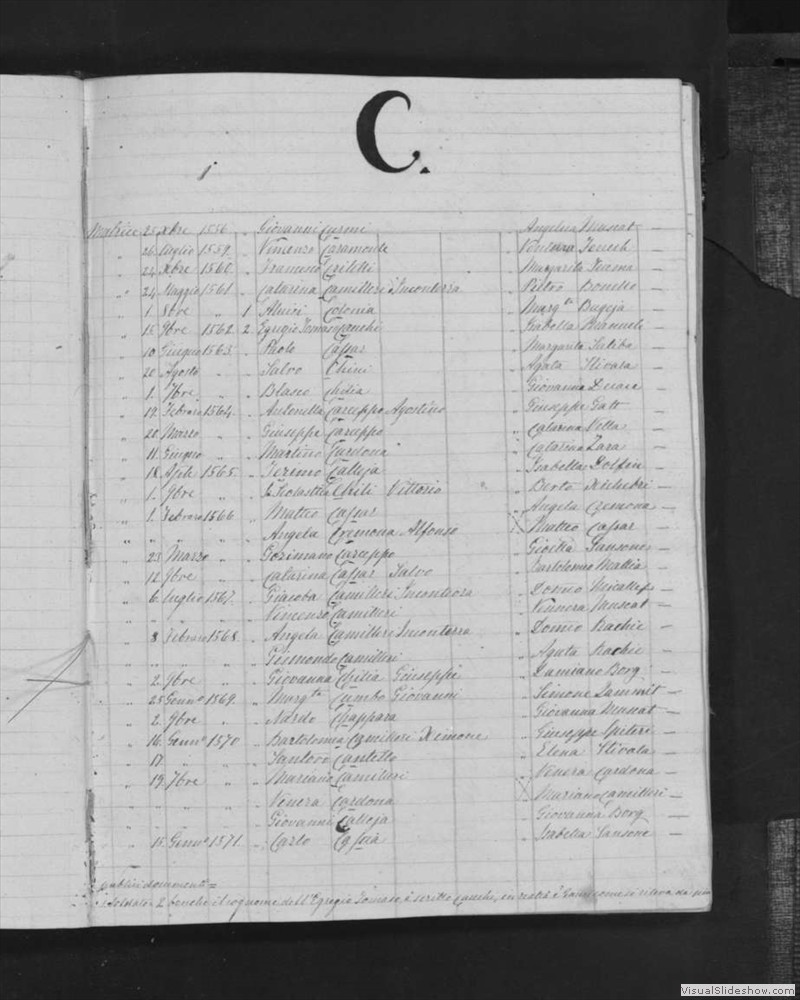 C.
1
Matrice 25 Xbre 1556 " Giovanni Curmi Angelica Muscat —
" 26 Luglio 1559 " Vincenzo Caramonte —
" 24 Xbre 1560 " Margarita —
" 24 Maggio 1561 " Catarina Camilleri Inconterra " Pietro Bonello —
" 1 8bre " 1 Colonia " Marg.ta Bugeja —
" 15 9bre 1562 2 Egregio Tomaso Canchi " Isabella —
" 10 Giugno 1563 " Cassar Margarita —
" 20 Agosto " Salvo Chini " Agata Stivala —
" 1 7bre " " Blasco Chilia Giovanna —
" 19 Febraro 1564 " Antonella Caruppo Agostino " Giuseppe Gatt —
" 20 Marzo " " Giuseppe Caruppo " Catarina Vella —
" 11 Giugno " " Martino Cardona " Catarina Zara —
" 18 Aple 1565 " Calleja " Isabella —
" 1 9bre " " Scolastica Chili Vittorio " Berto —
" 1 Febraro 1566 " Matteo Cassar Angela Cremona —
" " " " Angela Cremona Alfonso Matteo Cassar —
" 23 Marzo " " Caruppo Gioella Sansone —
" 12 9bre " " Catarina Cassar Salvo " Bartolomeo Mallia —
" 6 Luglio 1567 " Giacoba Camilleri Inconterra " Domeo Micallef —
" " " " Vincenzo Camilleri " Vennera Muscat —
" 8 Febraro 1568 " Angela Camilleri Inconterra " Domeo —
" " " " Gismondo Camilleri " Agata —
" 2 9bre " " Giovanna Chilia Giuseppe " Damiano Borg —
" 25 Genno 1569 " Marg.ta Cumbo Giovanni " Simone Sammit —
" 2 9bre " " Nardo Chappara Giovanna Muscat —
" 16 Genno 1570 " Bartolomea Camilleri Ximone " Giuseppe Spiteri —
" 17 " " " Santoro Cantello " Elena Stivala —
" 19 7bre " " Mariano Camilleri " Venera Cardona —
" " " " Venera Cardona Mariano Camilleri —
" Giovanni Calleja " Giovanna Borg —
" 15 Genno 1571 " Carlo Cassia " Isabella Sansone —
1 Soldato 2 benchè il cognome dell'Egregio Tomaso, è scritto Canchi, in realtà è come si rileva da
VisualSlideshow.com